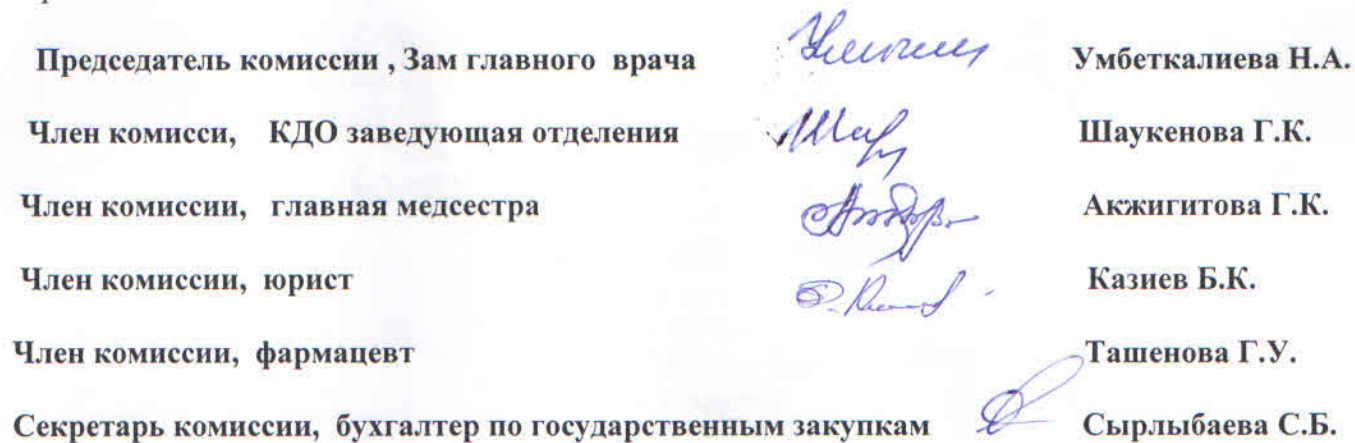 Председатель комиссии , Зам главного врача Умбеткалиева Н.А.
Член комисси, КДО заведующая отделения Шаукенова Г.К.
Член комиссии, главная медсестра Акжигитова Г.К.
Член комиссии, юрист Казиев Б.К.
Член комиссии, фармацевт Ташенова Г.У.
Секретарь комиссии, бухгалтер по государственным закупкам Сырлыбаева С.Б.